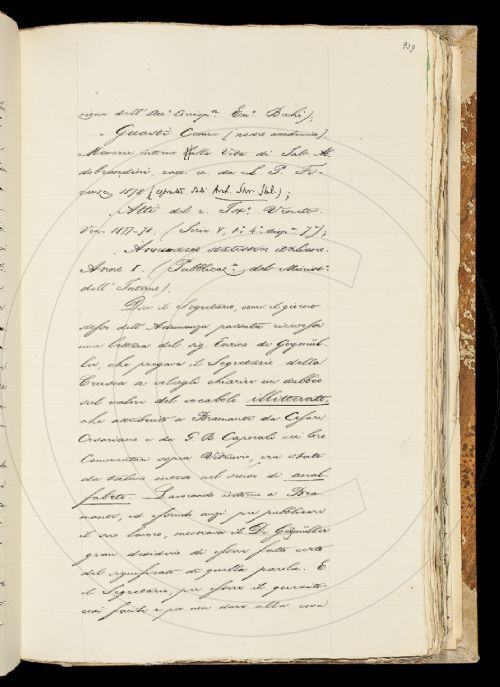 929
signor dell' Acc. Corrisp. Em. Bechi);
Guasti Cesare (nostro accademico)
Memorie intorno alla Vita di Salv. Al
debrandini, racc. ec. da L. P. Fi-
renze 1878 (estratto dall' Arch. Stor. Ital.);
Atti del r. Ist. Veneto.
Ven. 1877-78. (Serie V, t. 4. disp. 7);
Annuario statistico italiano.
Anno I. (Pubblicaz. del Minist.
dell' Interno).
Dice il Segretario, come il giorno
stesso dell' Adunanza passata ricevesse
una lettera del sig. Enrico de Geymül-
ler, che pregava il Segretario della
Crusca a volergli chiarire un dubbio
sul valore del vocabolo illitterato,
che attribuito a Bramante da Cesare
Cesariano e da G. B. Caporali nei loro
Commentari sopra Vitruvio, era stato
da taluno inteso nel senso di anal-
fabeta. Lavorando intorno a Bra-
mante, ed essendo anzi per pubblicare
il suo lavoro, mostrava il De Geymüller
gran desiderio di esser fatto certo
del significato di quella parola. E
il Segretario, per essere il quesito
così facile e per non dare alla cosa